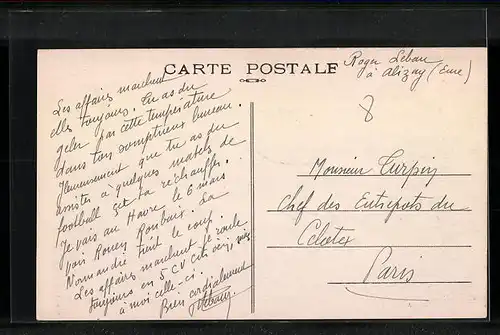 CARTE POSTALE
Roger Lebau
à Alizay (Eure)
8
Les affairs marchent
elles toujours. Tu as du
geler par cette température
dans ton somptueux bureau.
Heureusement que tu as du
assister à quelques matchs de
football ça t'a réchauffer.
Je vais au Havre le 6 mars
voir Rouen Roubaix. La
Normandie tient le coup.
Les affaires marchent je roule
toujours en 5 CV Citroën, mais
à moi celle-ci.
Bien cordialement
Monsieur Turpin
Chef des Entrepots du
Celotex
Paris